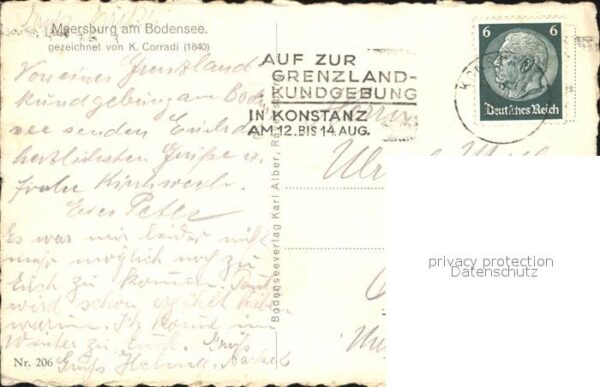 Meersburg am Bodensee.
gezeichnet von K. Corradi (1840)
Von einer Grenzland
kundgebung am Boden
see senden Euch d
herzlichsten Grüße u.
frohe Kirchweih.
Euer Peter
Es war mir leider nicht
mehr möglich noch zu
Euch zu kommen.
wird schon erzählt haben
warum. Ich komme im
Winter zu Euch. Gruß
Gruß Helmut
Nr. 206
Bodenseeverlag Karl Alber,
AUF ZUR
GRENZLAND-
KUNDGEBUNG
IN KONSTANZ
AM 12. BIS 14 AUG.
6 6
Deutsches Reich
Herrn
privacy protection
Datenschutz